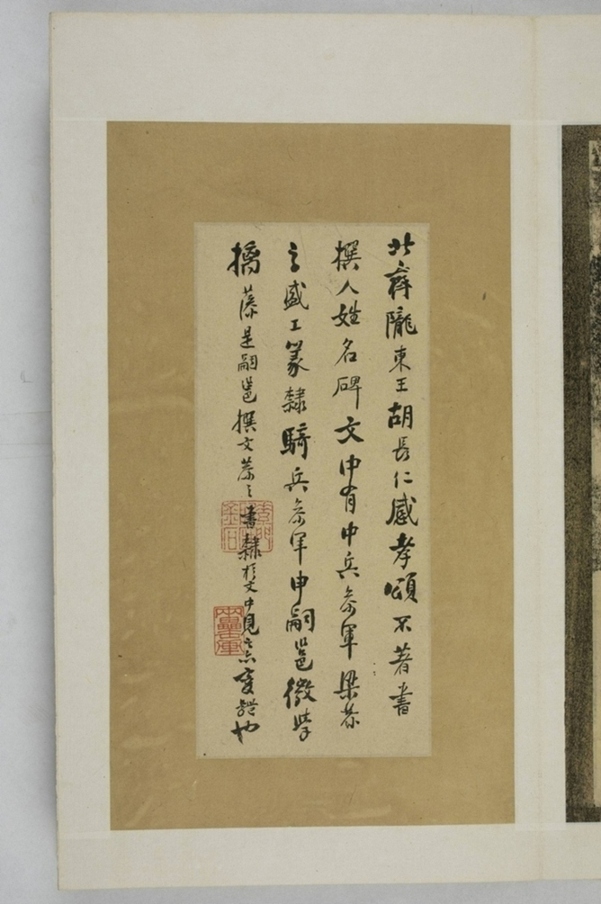 北齊隴東王胡長仁感孝頌不著書
撰人姓名碑文中有中兵叅軍梁恭
之盛工篆隸騎兵叅軍申嗣邕微學
摛藻是嗣邕撰文恭之書隸於文中見之亦變體也